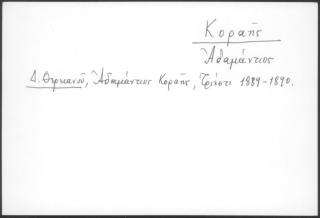 Κοραῆς
Ἀδαμάντιος
Δ. Θερειανοῦ, Ἀδαμάντιος Κοραῆς, Τριέστι 1889-1890.